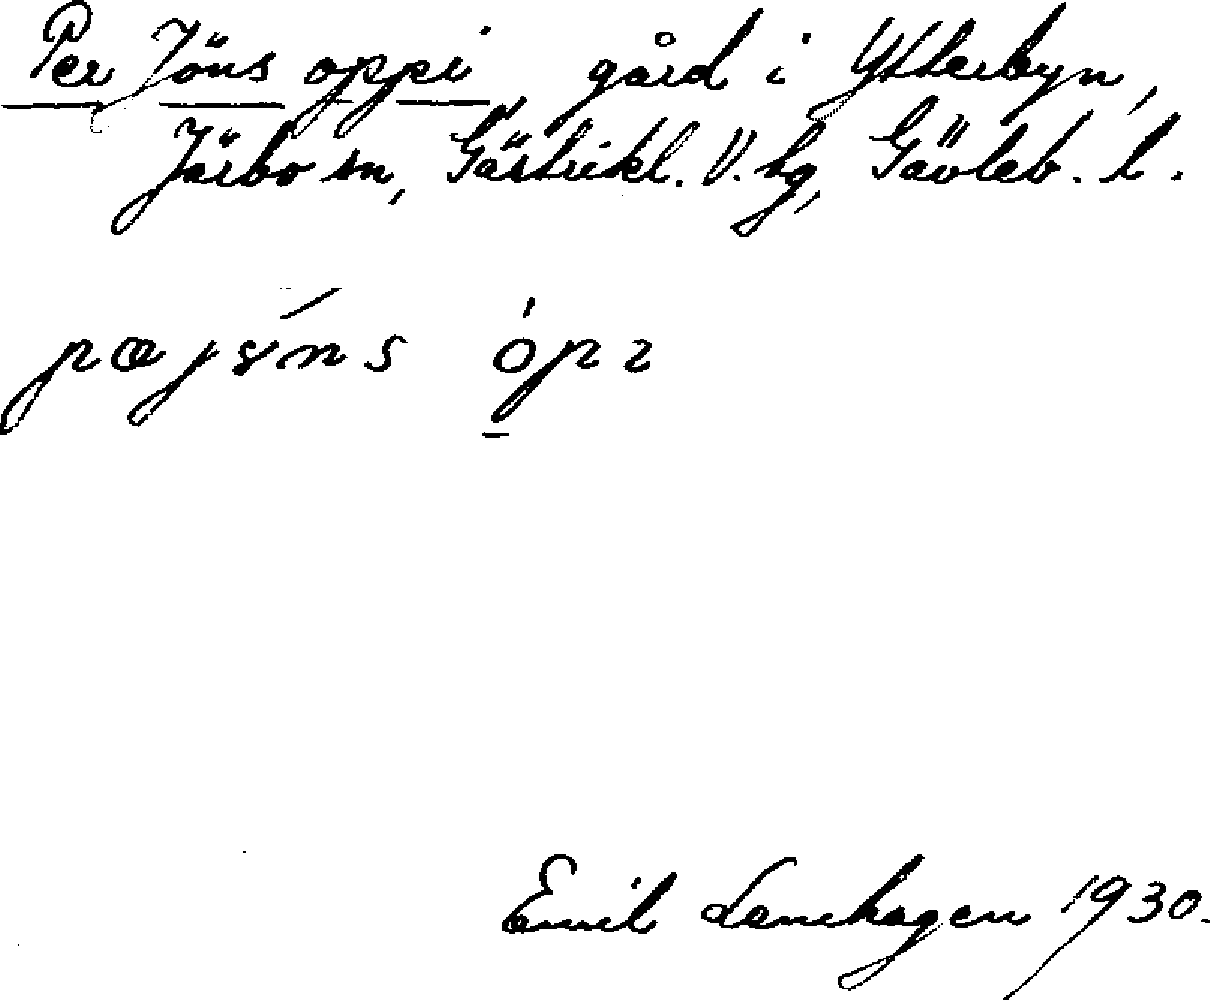 Per Jöns oppi, gård i Ytterbyn,
Järbo sn, Gästrikl. V. hg, Gävleb. l.
pæjɤ́ns ópɩ
Emil Lanehagen 1930.